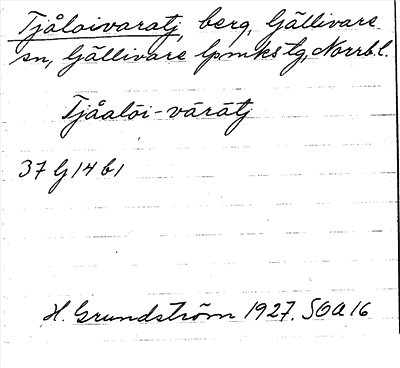 Tjåloivaratj, berg, Gällivare
sn, Gällivare lpmkstg, Norrb.l.
Tjåaloi-váràtj
37 G 14 b 1
H. Grundström 1927. SOA 16